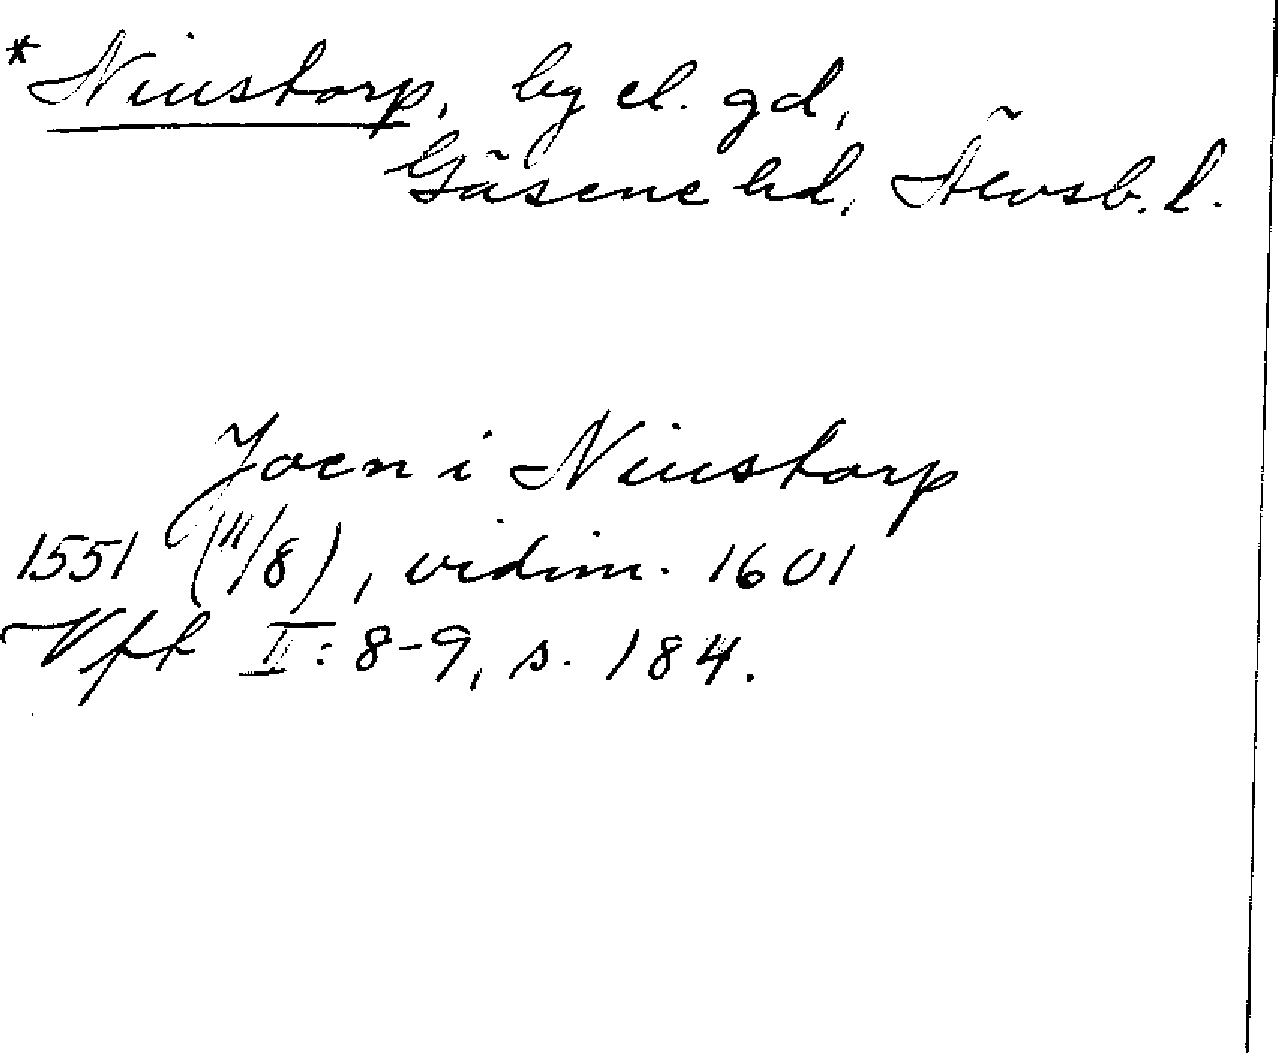 *Niustorp, by el. gd,
Gäsene hd, Älvsb. l.
Joen i Niustorp
1551 (11/8), vidim. 1601
Vft II: 8-9, s. 184.